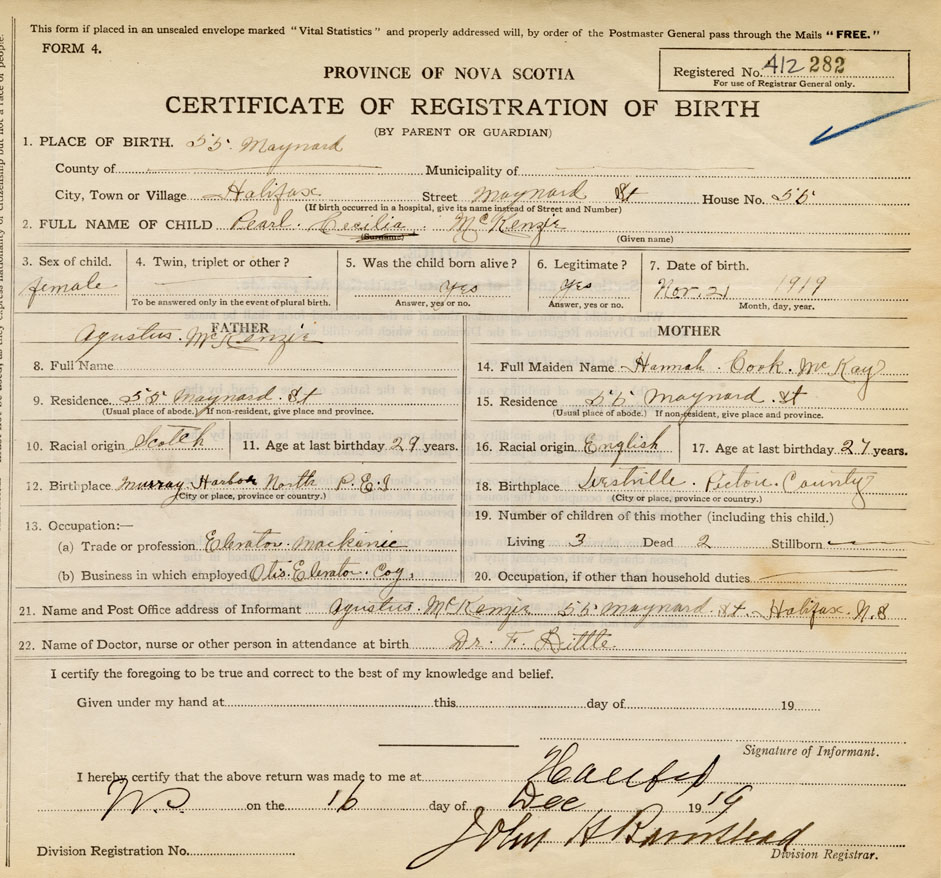 This form if placed in an unsealed envelope marked "Vital Statistics" and properly addressed will, by order of the Postmaster General pass through the Mails "FREE."
FORM 4.
Registered No. 412 282
For use of Registrar General only.
PROVINCE OF NOVA SCOTIA
CERTIFICATE OF REGISTRATION OF BIRTH
(BY PARENT OR GUARDIAN)
1. PLACE OF BIRTH. 55 Maynard
County of Municipality of
City, Town or Village Halifax Street Maynard St House No. 55
(If birth occurred in a hospital, give its name instead of Street and Number)
2. FULL NAME OF CHILD Pearl. Cecilia. McKenzie
(Surname) (Given name)
3. Sex of child. 4. Twin, triplet or other? 5. Was the child born alive? 6. Legitimate? 7. Date of birth.
female yes yes Nov. 21 1919
To be answered only in the event of plural birth. Answer, yes or no. Answer, yes or no. Month, day, year.
FATHER MOTHER
Agustus. McKenzie
8. Full Name 14. Full Maiden Name Hannah Cook McKay
9. Residence 55 Maynard. St 15. Residence 55 Maynard. St
(Usual place of abode.) If non-resident, give place and province. (Usual place of abode.) If non-resident, give place and province.
10. Racial origin Scotch 11. Age at last birthday 29 years. 16. Racial origin English 17. Age at last birthday 27 years.
12. Birthplace Murray Harbor North P.E.I 18. Birthplace Westville. Pictou. County
(City or place, province or country.) (City or place, province or country.)
13. Occupation:— 19. Number of children of this mother (including this child.)
(a) Trade or profession Elevator. Mackenic Living 3 Dead 2 Stillborn
(b) Business in which employed Otis. Elevator. Coy. 20. Occupation, if other than household duties
21. Name and Post Office address of Informant Agustus. McKenzie 55 Maynard. St. Halifax. N.S
22. Name of Doctor, nurse or other person in attendance at birth Dr. F.
I certify the foregoing to be true and correct to the best of my knowledge and belief.
Given under my hand at this day of 19
Signature of Informant.
I hereby certify that the above return was made to me at Halifax
NS on the 16 day of Dec 1919
John H Barnstead
Division Registration No. Division Registrar.